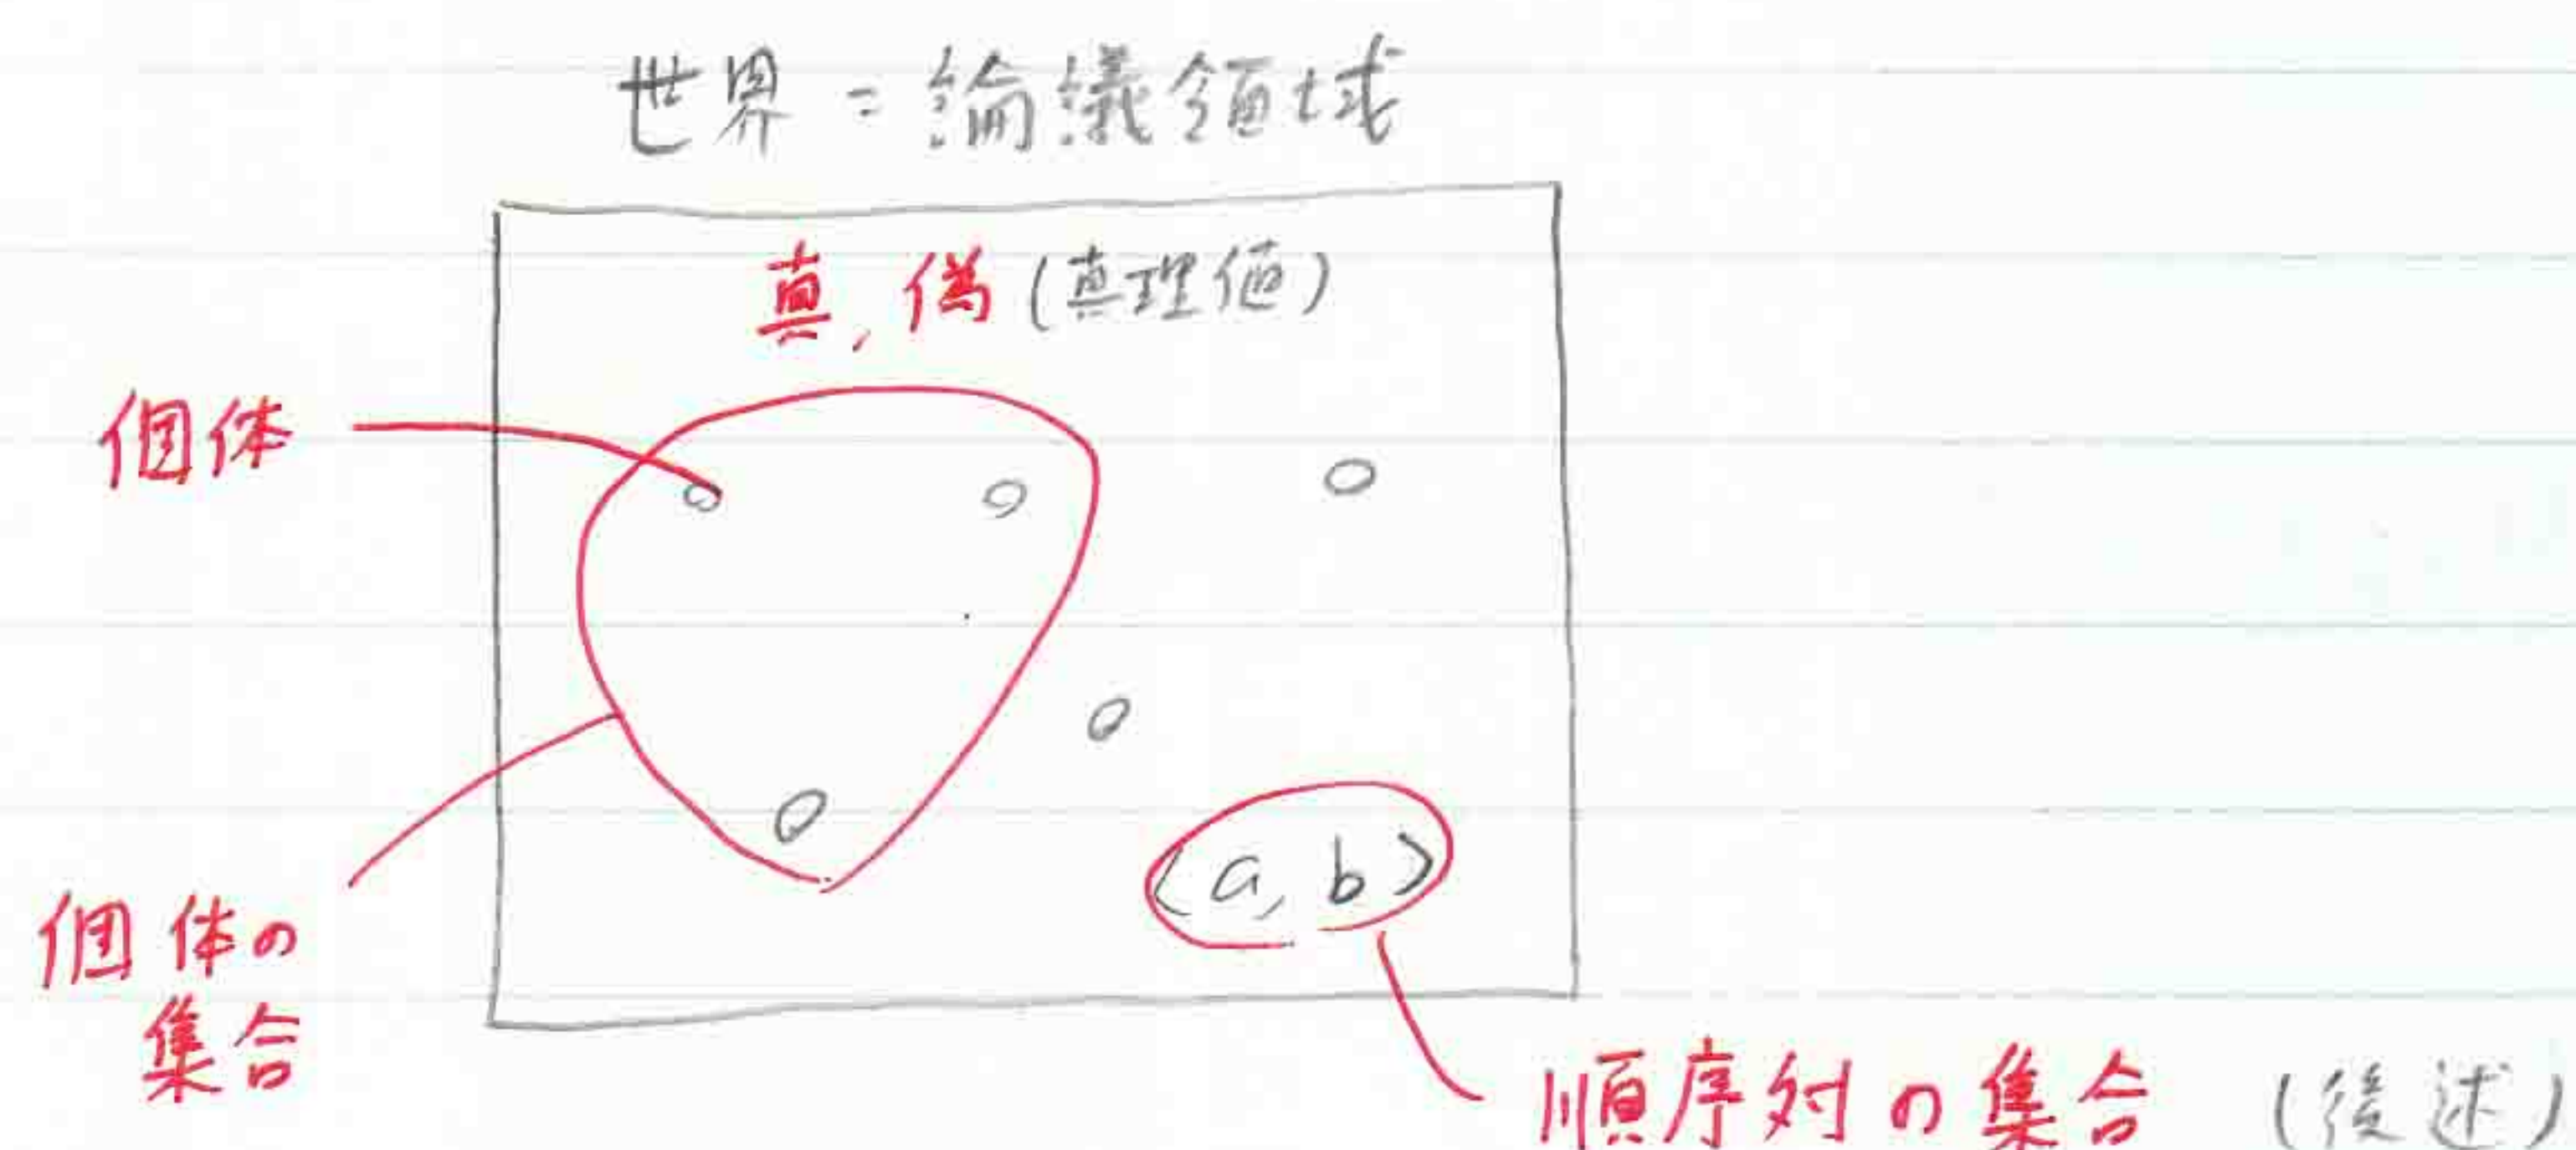 世界 = 論議領域
真, 偽 (真理値)
個体
⟨a, b⟩
個体の
集合
順序対の集合 (後述)